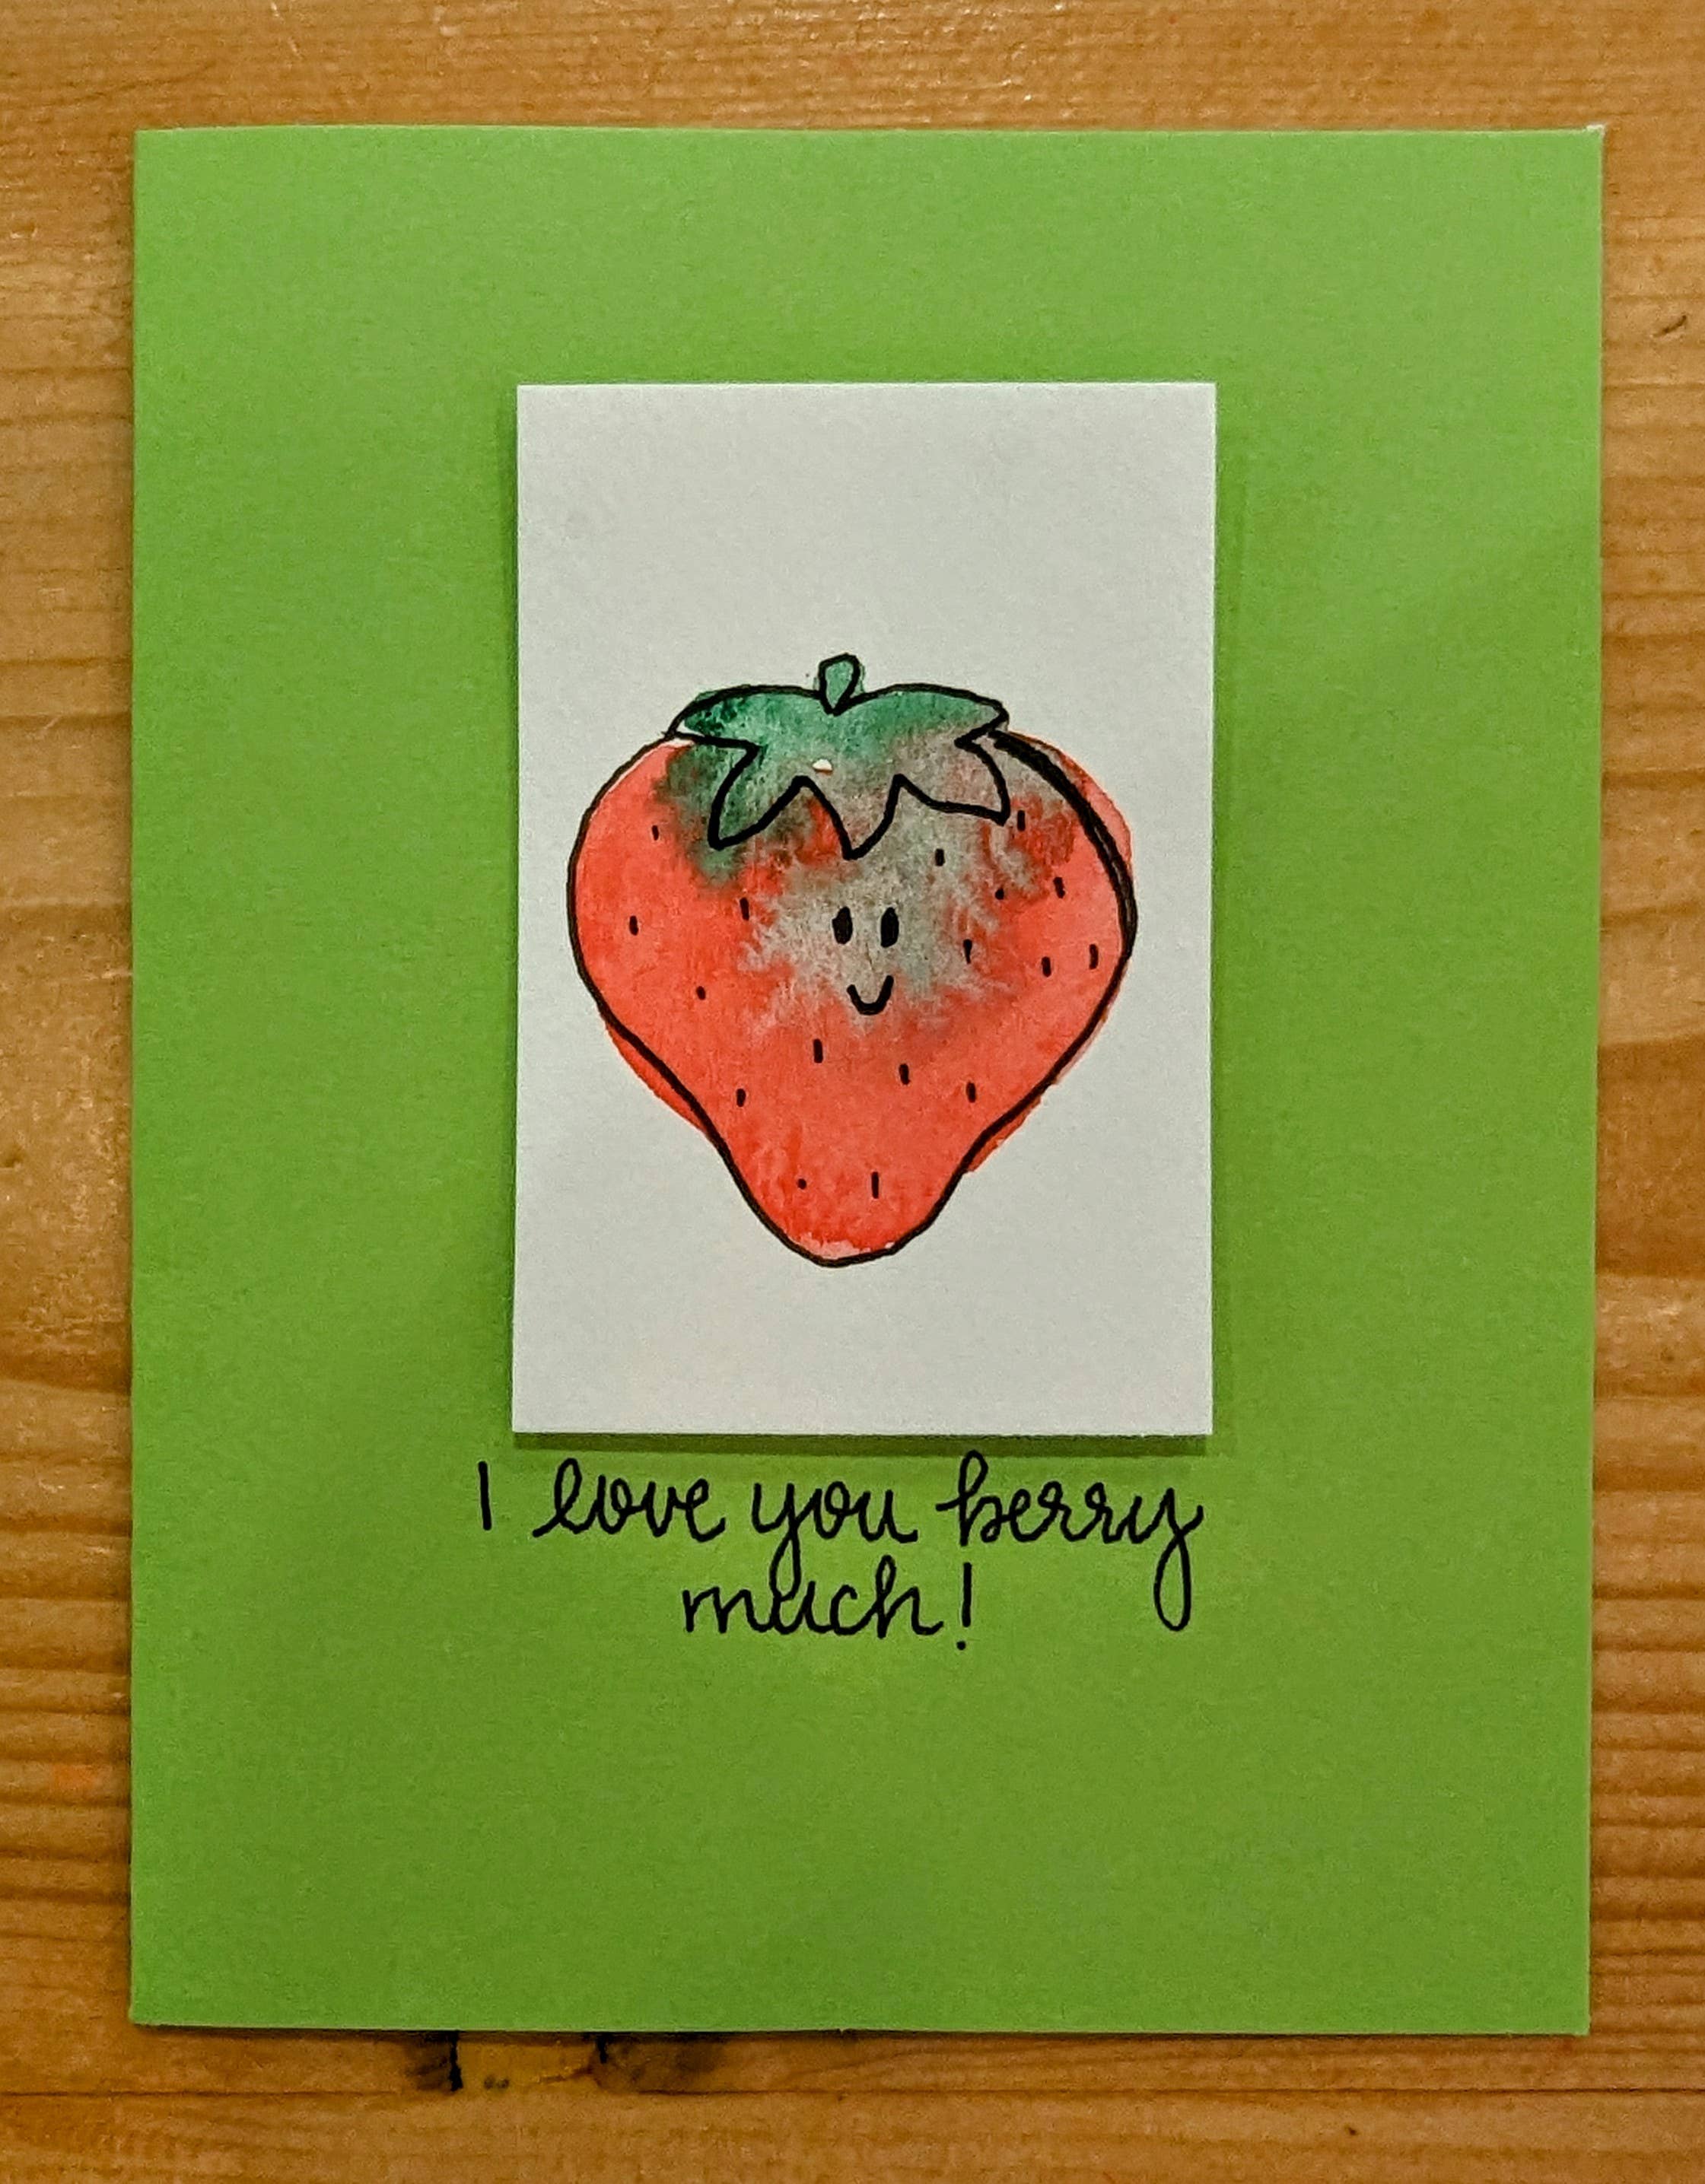 I love you berry
much!